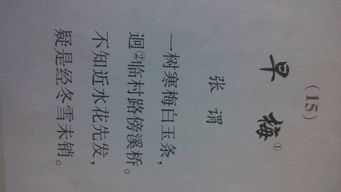 (15)
早梅①
张谓
一树寒梅白玉条,
迥②临村路傍溪桥。
不知近水花先发,
疑是经冬雪未销。